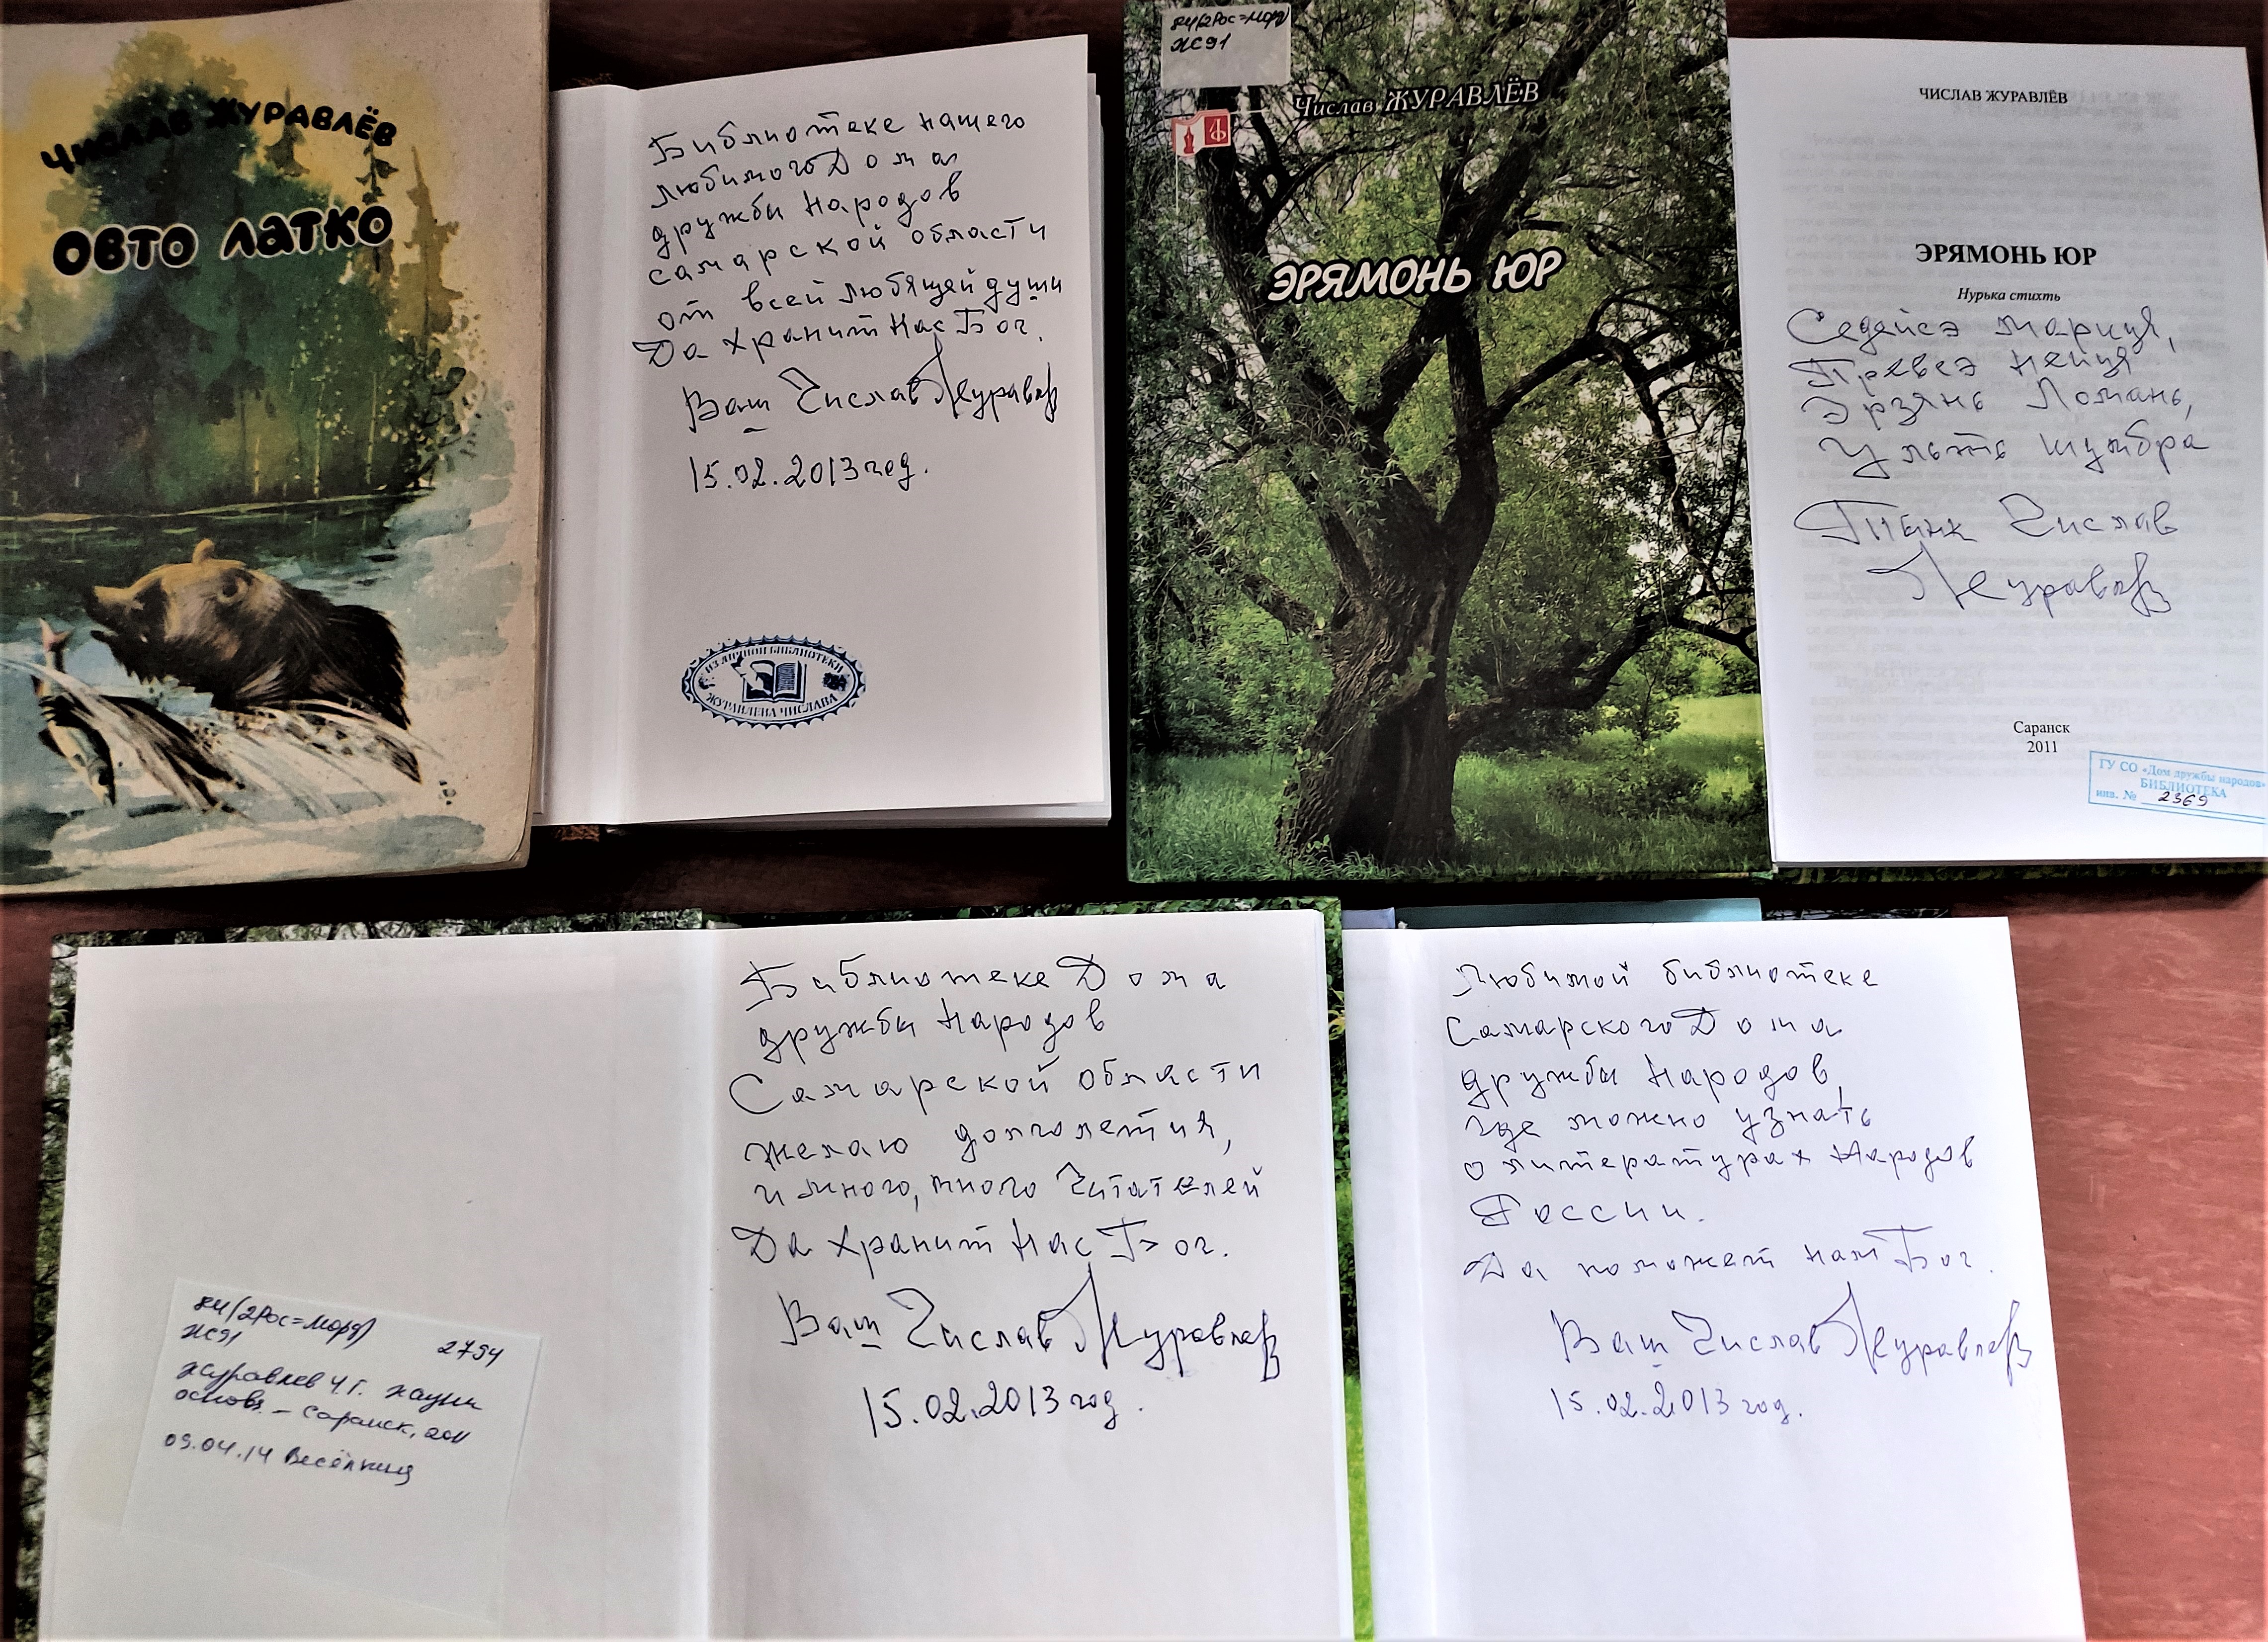 ЧИСЛАВ ЖУРАВЛЁВ
ОВТО ЛАТКО
Библиотеке нашего
любимого Дома
дружбы народов
самарской области
от всей любящей души
Да хранит Нас Бог.
Ваш Числав Журавлев
15.02.2013 год.
ИЗ ЛИЧНОЙ БИБЛИОТЕКИ
ЖУРАВЛЕВА ЧИСЛАВА
84(2Рос=Морд)
Ж91
Числав ЖУРАВЛЁВ
ЭРЯМОНЬ ЮР
ЧИСЛАВ ЖУРАВЛЁВ
ЭРЯМОНЬ ЮР
Нурька стихть
Седейсэ мариця,
Превсэ неиця
Эрзянь Ломань,
Ульть шумбра
Тынк Числав
Журавлев
Саранск
2011
ГУ СО «Дом дружбы народов»
БИБЛИОТЕКА
инв. № 2369
84(2Рос=Морд)
Ж91 2794
Журавлев Ч.Г.
основа. – Саранск, 2011
09.04.14
Библиотеке Дома
дружбы Народов
Самарской области
желаю долголетия,
и много, много Читателей
Да хранит Нас Бог.
Ваш Числав Журавлев
15.02.2013 год.
Любимой библиотеке
Самарского Дома
дружбы Народов,
где можно узнать
о литературах Народов
России.
Да поможет нам Бог.
Ваш Числав Журавлев
15.02.2013 год.